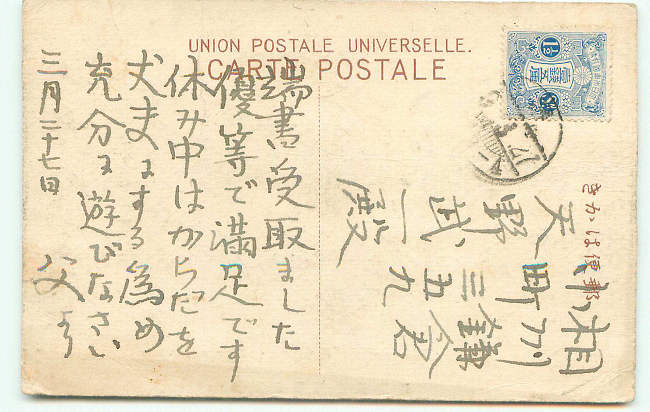 UNION POSTALE UNIVERSELLE.
CARTE POSTALE
郵便はかき
相州鎌倉
小町三五九
天野武一殿
端書受取ました
優等で満足です
休み中はからだを
丈夫にする為め
充分に遊びなさい
三月二十七日
父より